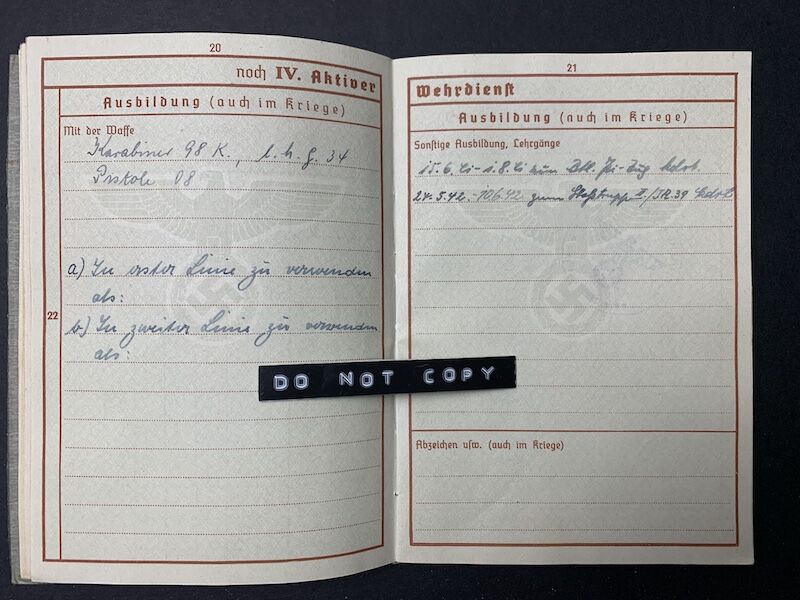 20
noch IV. Aktiver
Ausbildung (auch im Kriege)
Mit der Waffe
Karabiner 98 K., l. M. G. 34
Pistole 08
22
a) In erster Linie zu verwenden
als:
b) In zweiter Linie zu verwenden
als:
DO NOT COPY
21
Wehrdienst
Ausbildung (auch im Kriege)
Sonstige Ausbildung, Lehrgänge
15.6.41-1.8.41 zum Btl. Pi-Zug kdrt.
24.5.42.-10.6.42 zum II/IR.39 kdrt.
Abzeichen usw. (auch im Kriege)